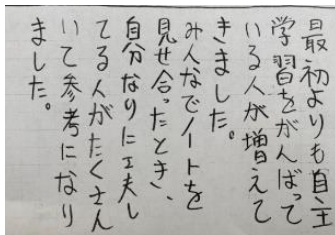 最初よりも自主
学習をがんばって
いる人が増えて
きました。
みんなでノートを
見せ合ったとき、
自分なりに工夫し
てる人がたくさん
いて参考になり
ました。